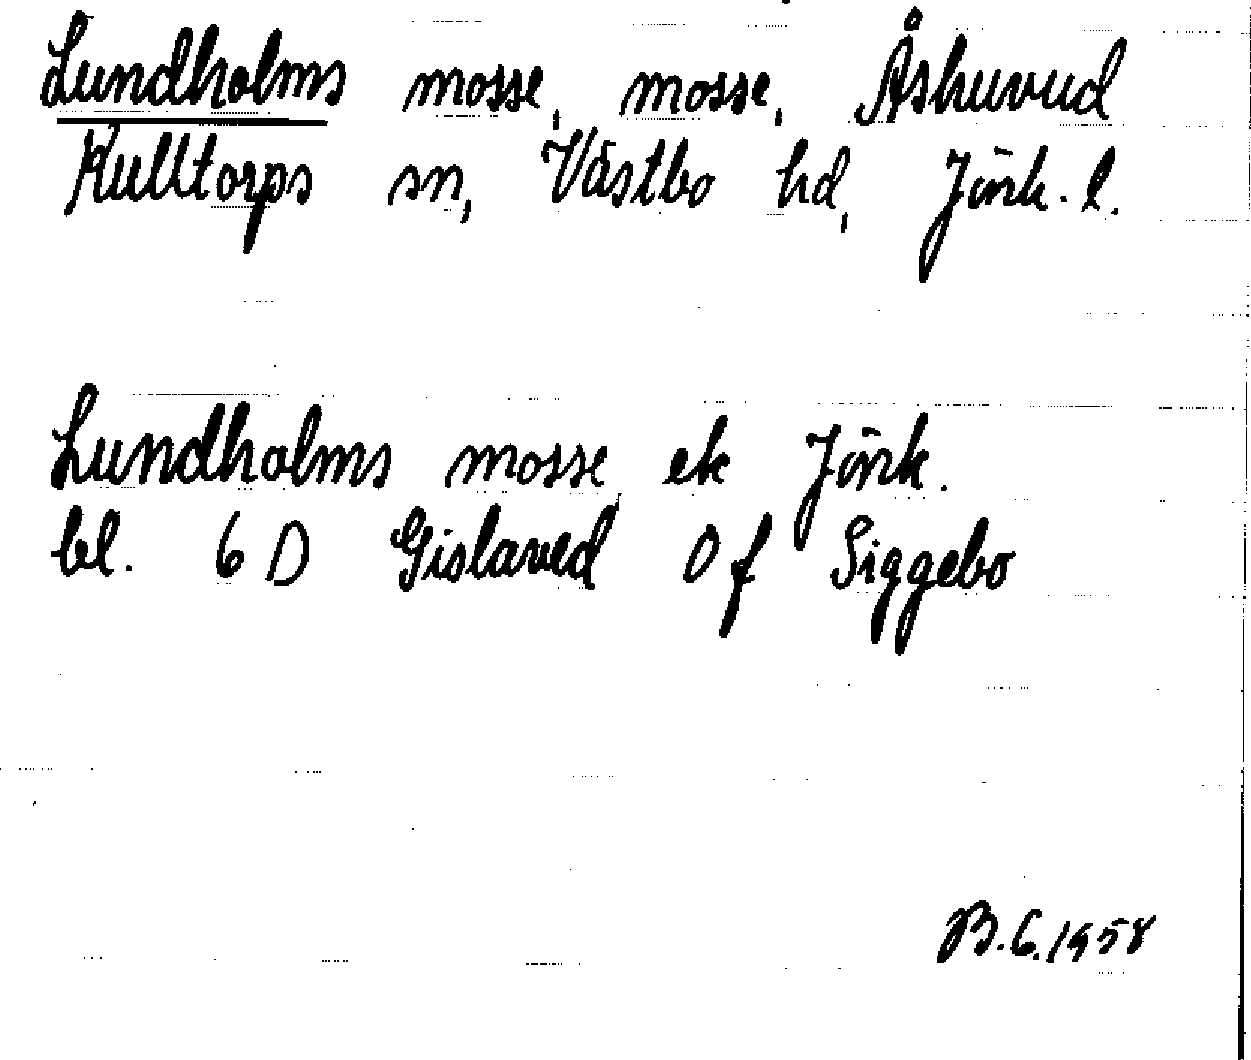 Lundholms mosse, mosse, Åshuvud
Kulltorps sn, Västbo hd, Jönk. l.
Lundholms mosse ek Jönk.
bl. 6 D Gislaved 0 f Siggebo
B.G.1958